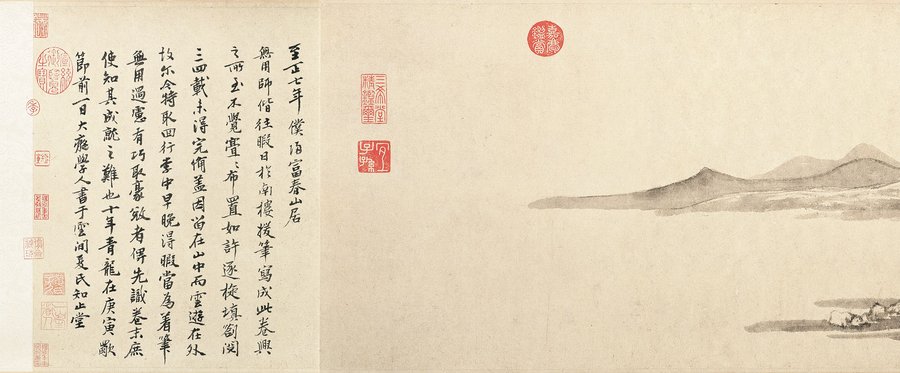 嘉慶鑑賞
三希堂精鑑璽
宜子孫
至正七年僕歸富春山居
無用師偕往暇日於南樓援筆寫成此卷興
之所至不覺亹亹布置如許逐旋填劄閱
三四載未得完備盖因留在山中而雲遊在外
故尔今特取回行李中早晚得暇當為着筆
無用過慮有巧取豪敚者俾先識卷末庶
使知其成就之難也十年青龍在庚寅歜
節前一日大癡學人書于雲間夏氏知止堂
宣統御覽之寶